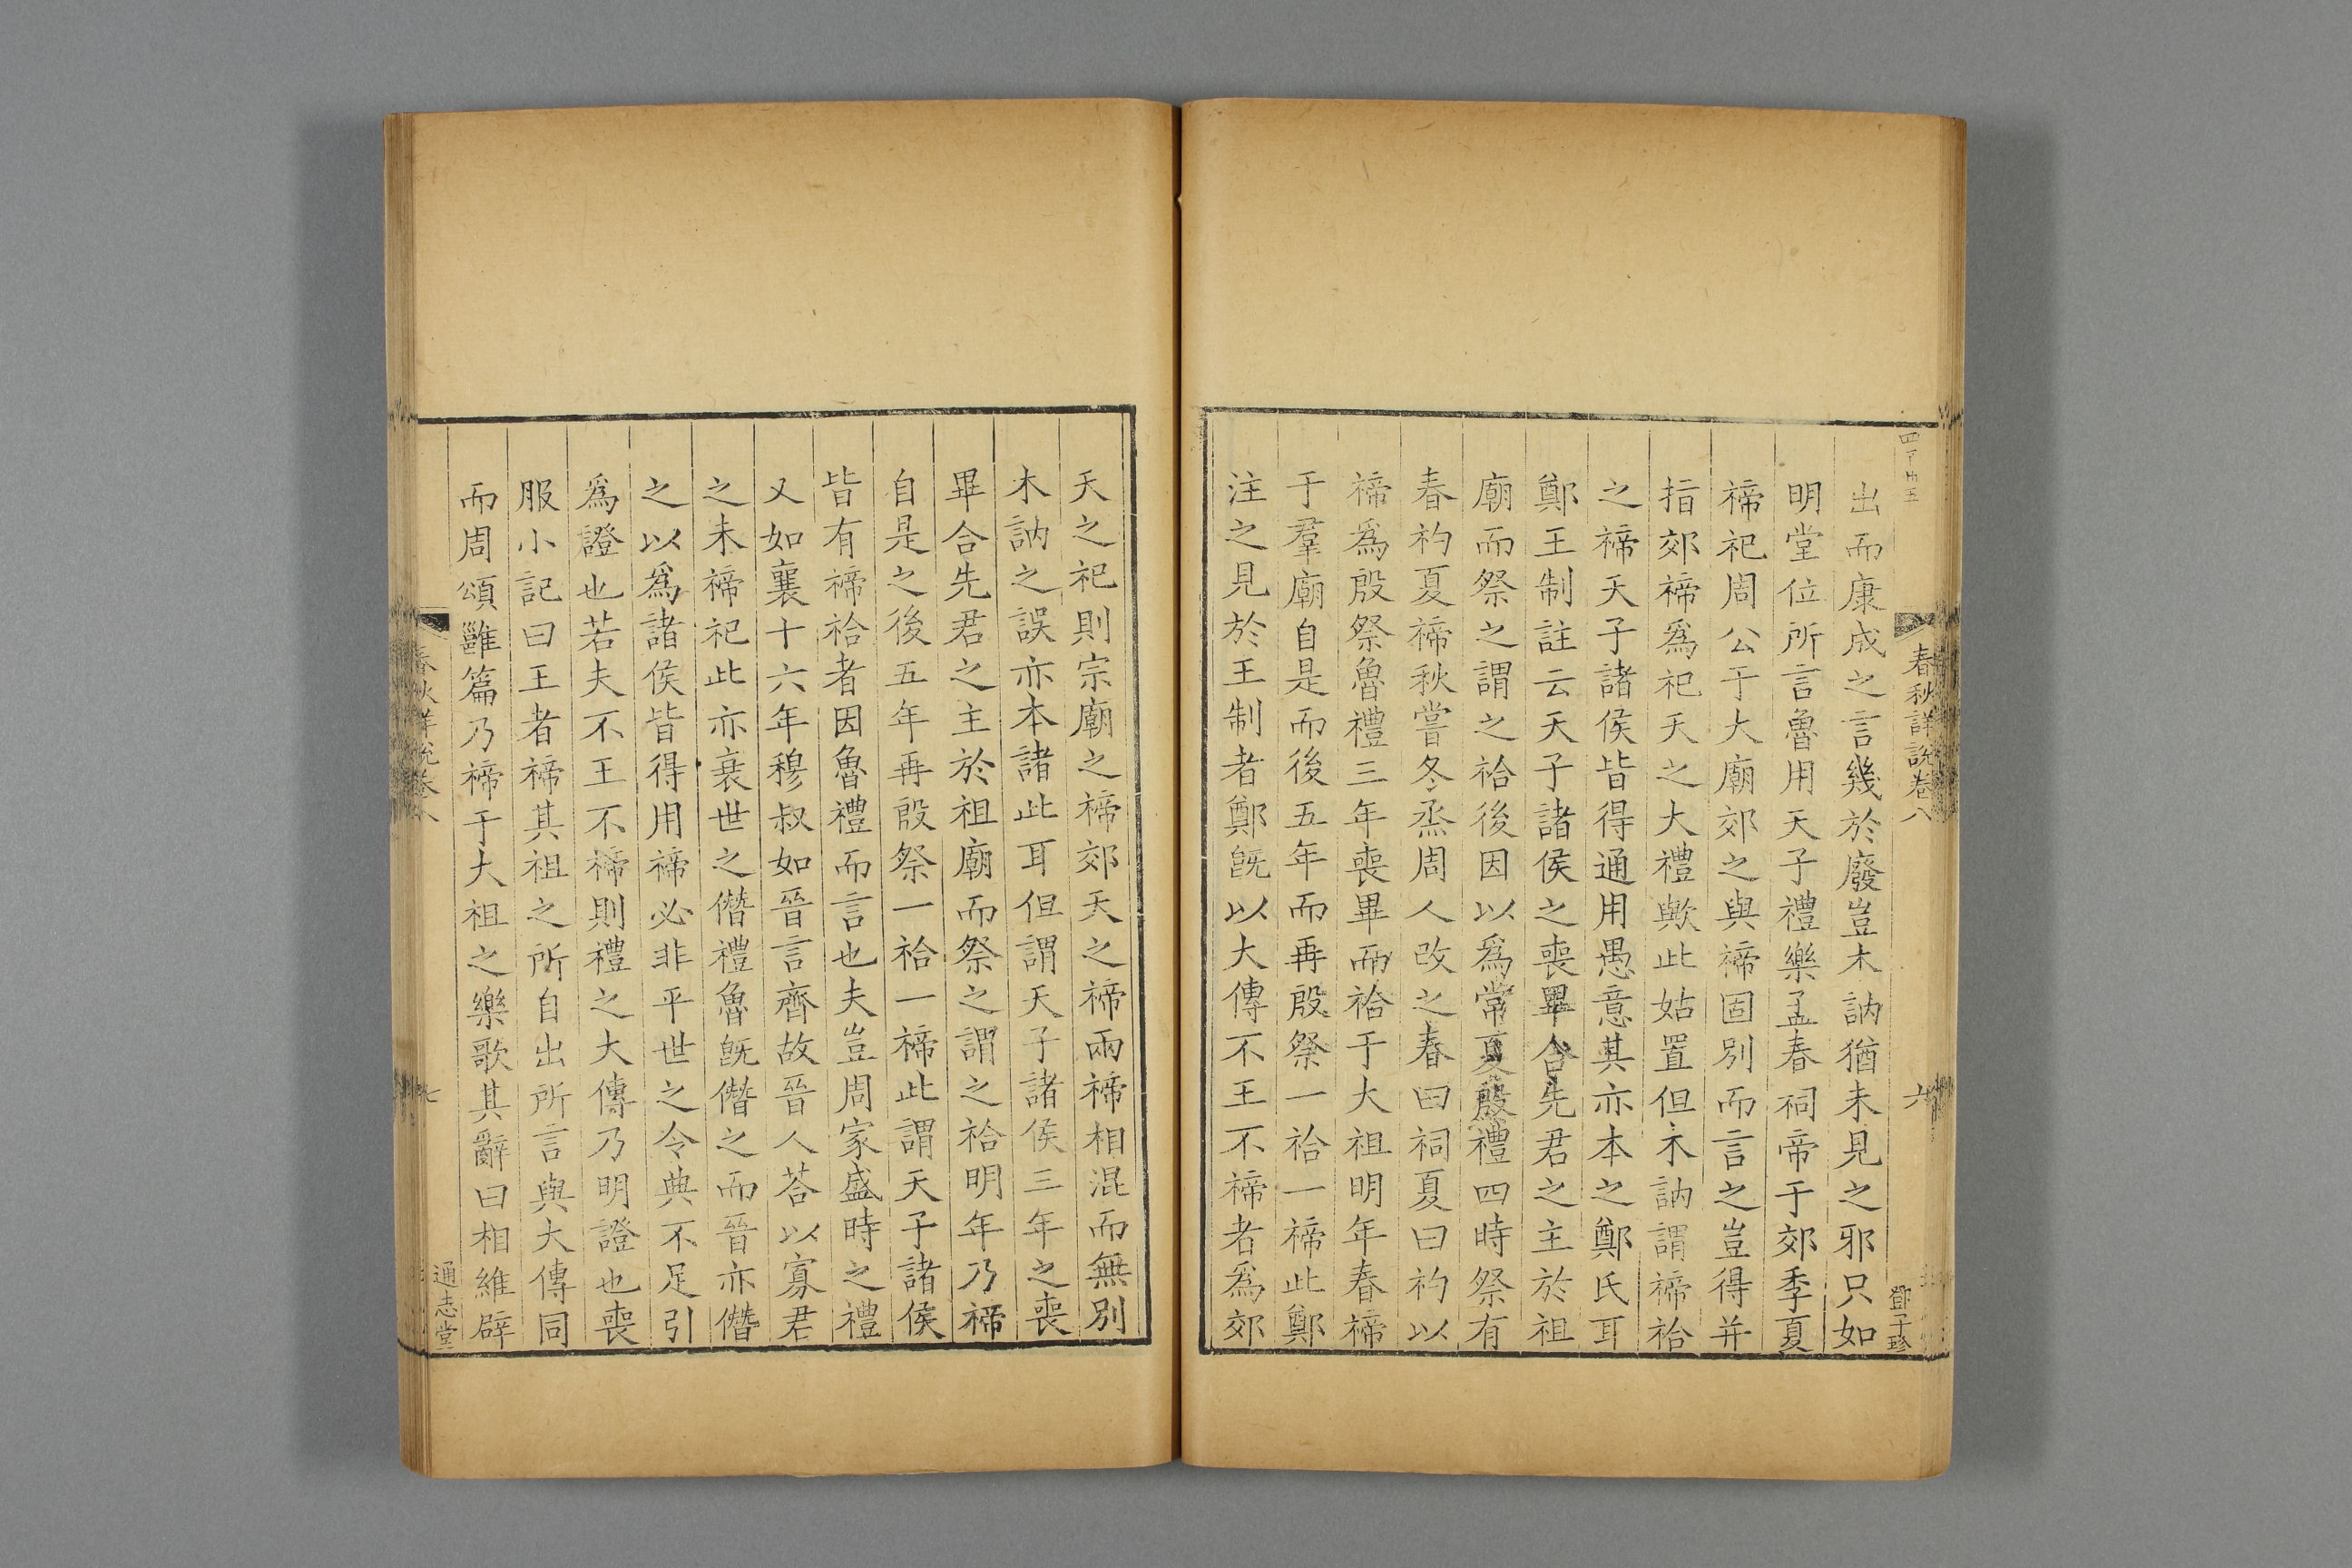 春秋詳說卷八
六
鄧子珍
出而康成之言幾於廢豈木訥猶未見之邪只如
明堂位所言魯用天子禮樂孟春祠帝于郊季夏
禘祀周公于大廟郊之與禘固別而言之豈得并
指郊禘爲祀天之大禮歟此姑置但木訥謂禘祫
之禘天子諸侯皆得通用愚意其亦本之鄭氏耳
鄭王制註云天子諸侯之喪畢合先君之主於祖
廟而祭之謂之祫後因以爲常夏殷禮四時祭有
春礿夏禘秋嘗冬烝周人改之春曰祠夏曰礿以
禘爲殷祭魯禮三年喪畢而祫于大祖明年春禘
于羣廟自是而後五年而再殷祭一祫一禘此鄭
注之見於王制者鄭旣以大傳不王不禘者爲郊
天之祀則宗廟之禘郊天之禘兩禘相混而無別
木訥之誤亦本諸此耳但謂天子諸侯三年之喪
畢合先君之主於祖廟而祭之謂之祫明年乃禘
自是之後五年再殷祭一祫一禘此謂天子諸侯
皆有禘祫者因魯禮而言也夫豈周家盛時之禮
又如襄十六年穆叔如晉言齊故晉人荅以寡君
之未禘祀此亦衰世之僭禮魯旣僭之而晉亦僭
之以爲諸侯皆得用禘必非平世之令典不足引
爲證也若夫不王不禘則禮之大傳乃明證也喪
服小記曰王者禘其祖之所自出所言與大傳同
而周頌雝篇乃禘于大祖之樂歌其辭曰相維辟
春秋詳說卷八
七
通志堂